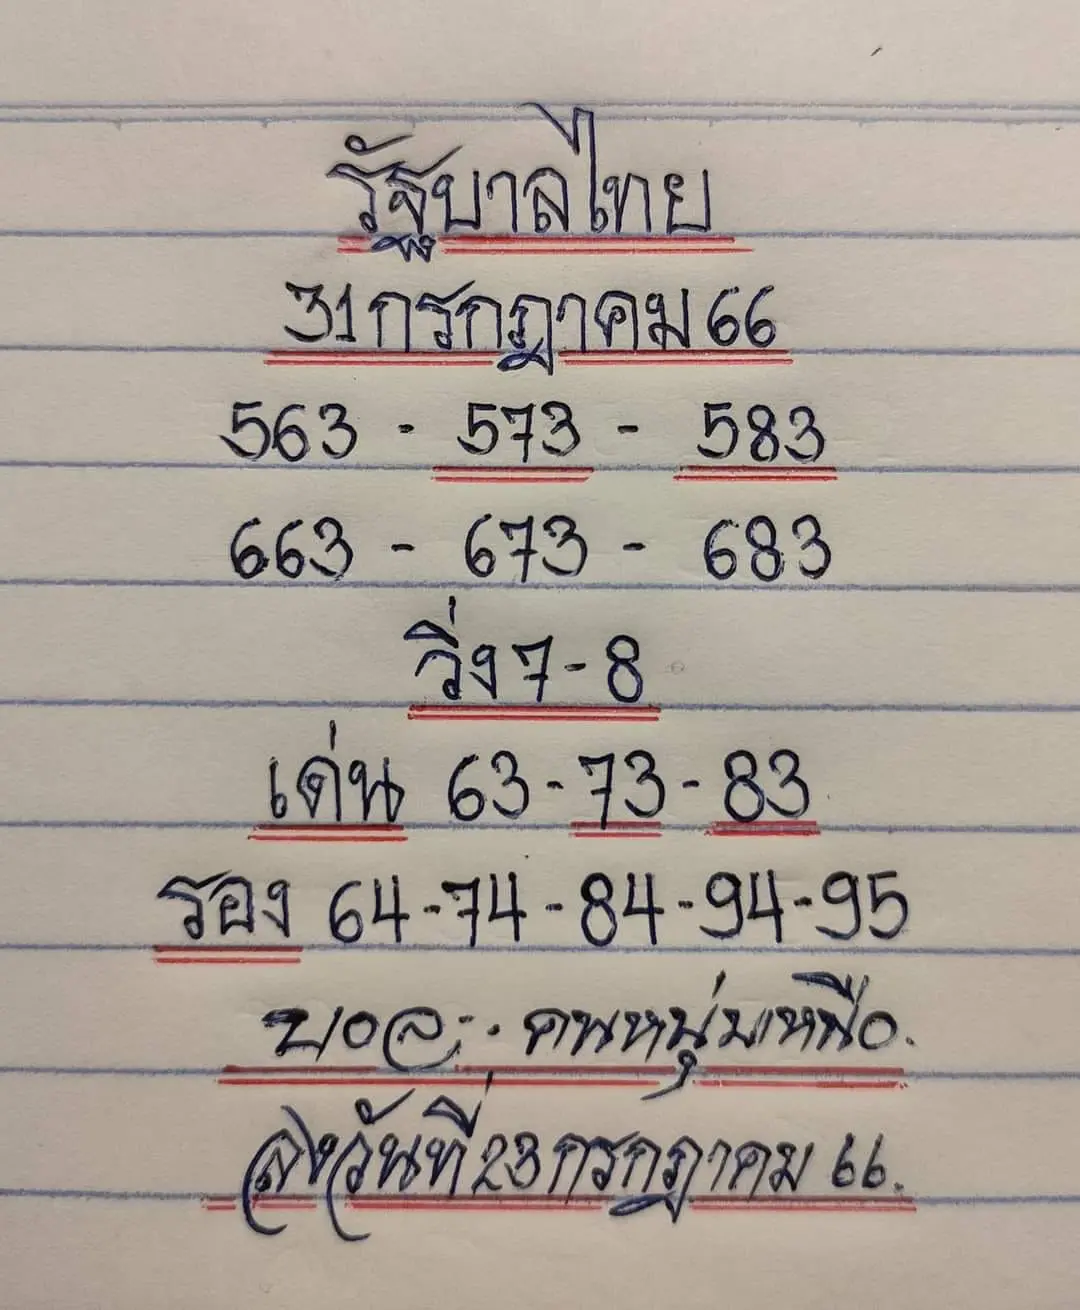 รัฐบาลไทย
31กรกฎาคม66
563 - 573 - 583
663 - 673 - 683
วิ่ง7-8
เด่น 63-73-83
รอง 64-74-84-94-95
คนหนุ่มเหนือ.
ลงวันที่23กรกฎาคม 66.